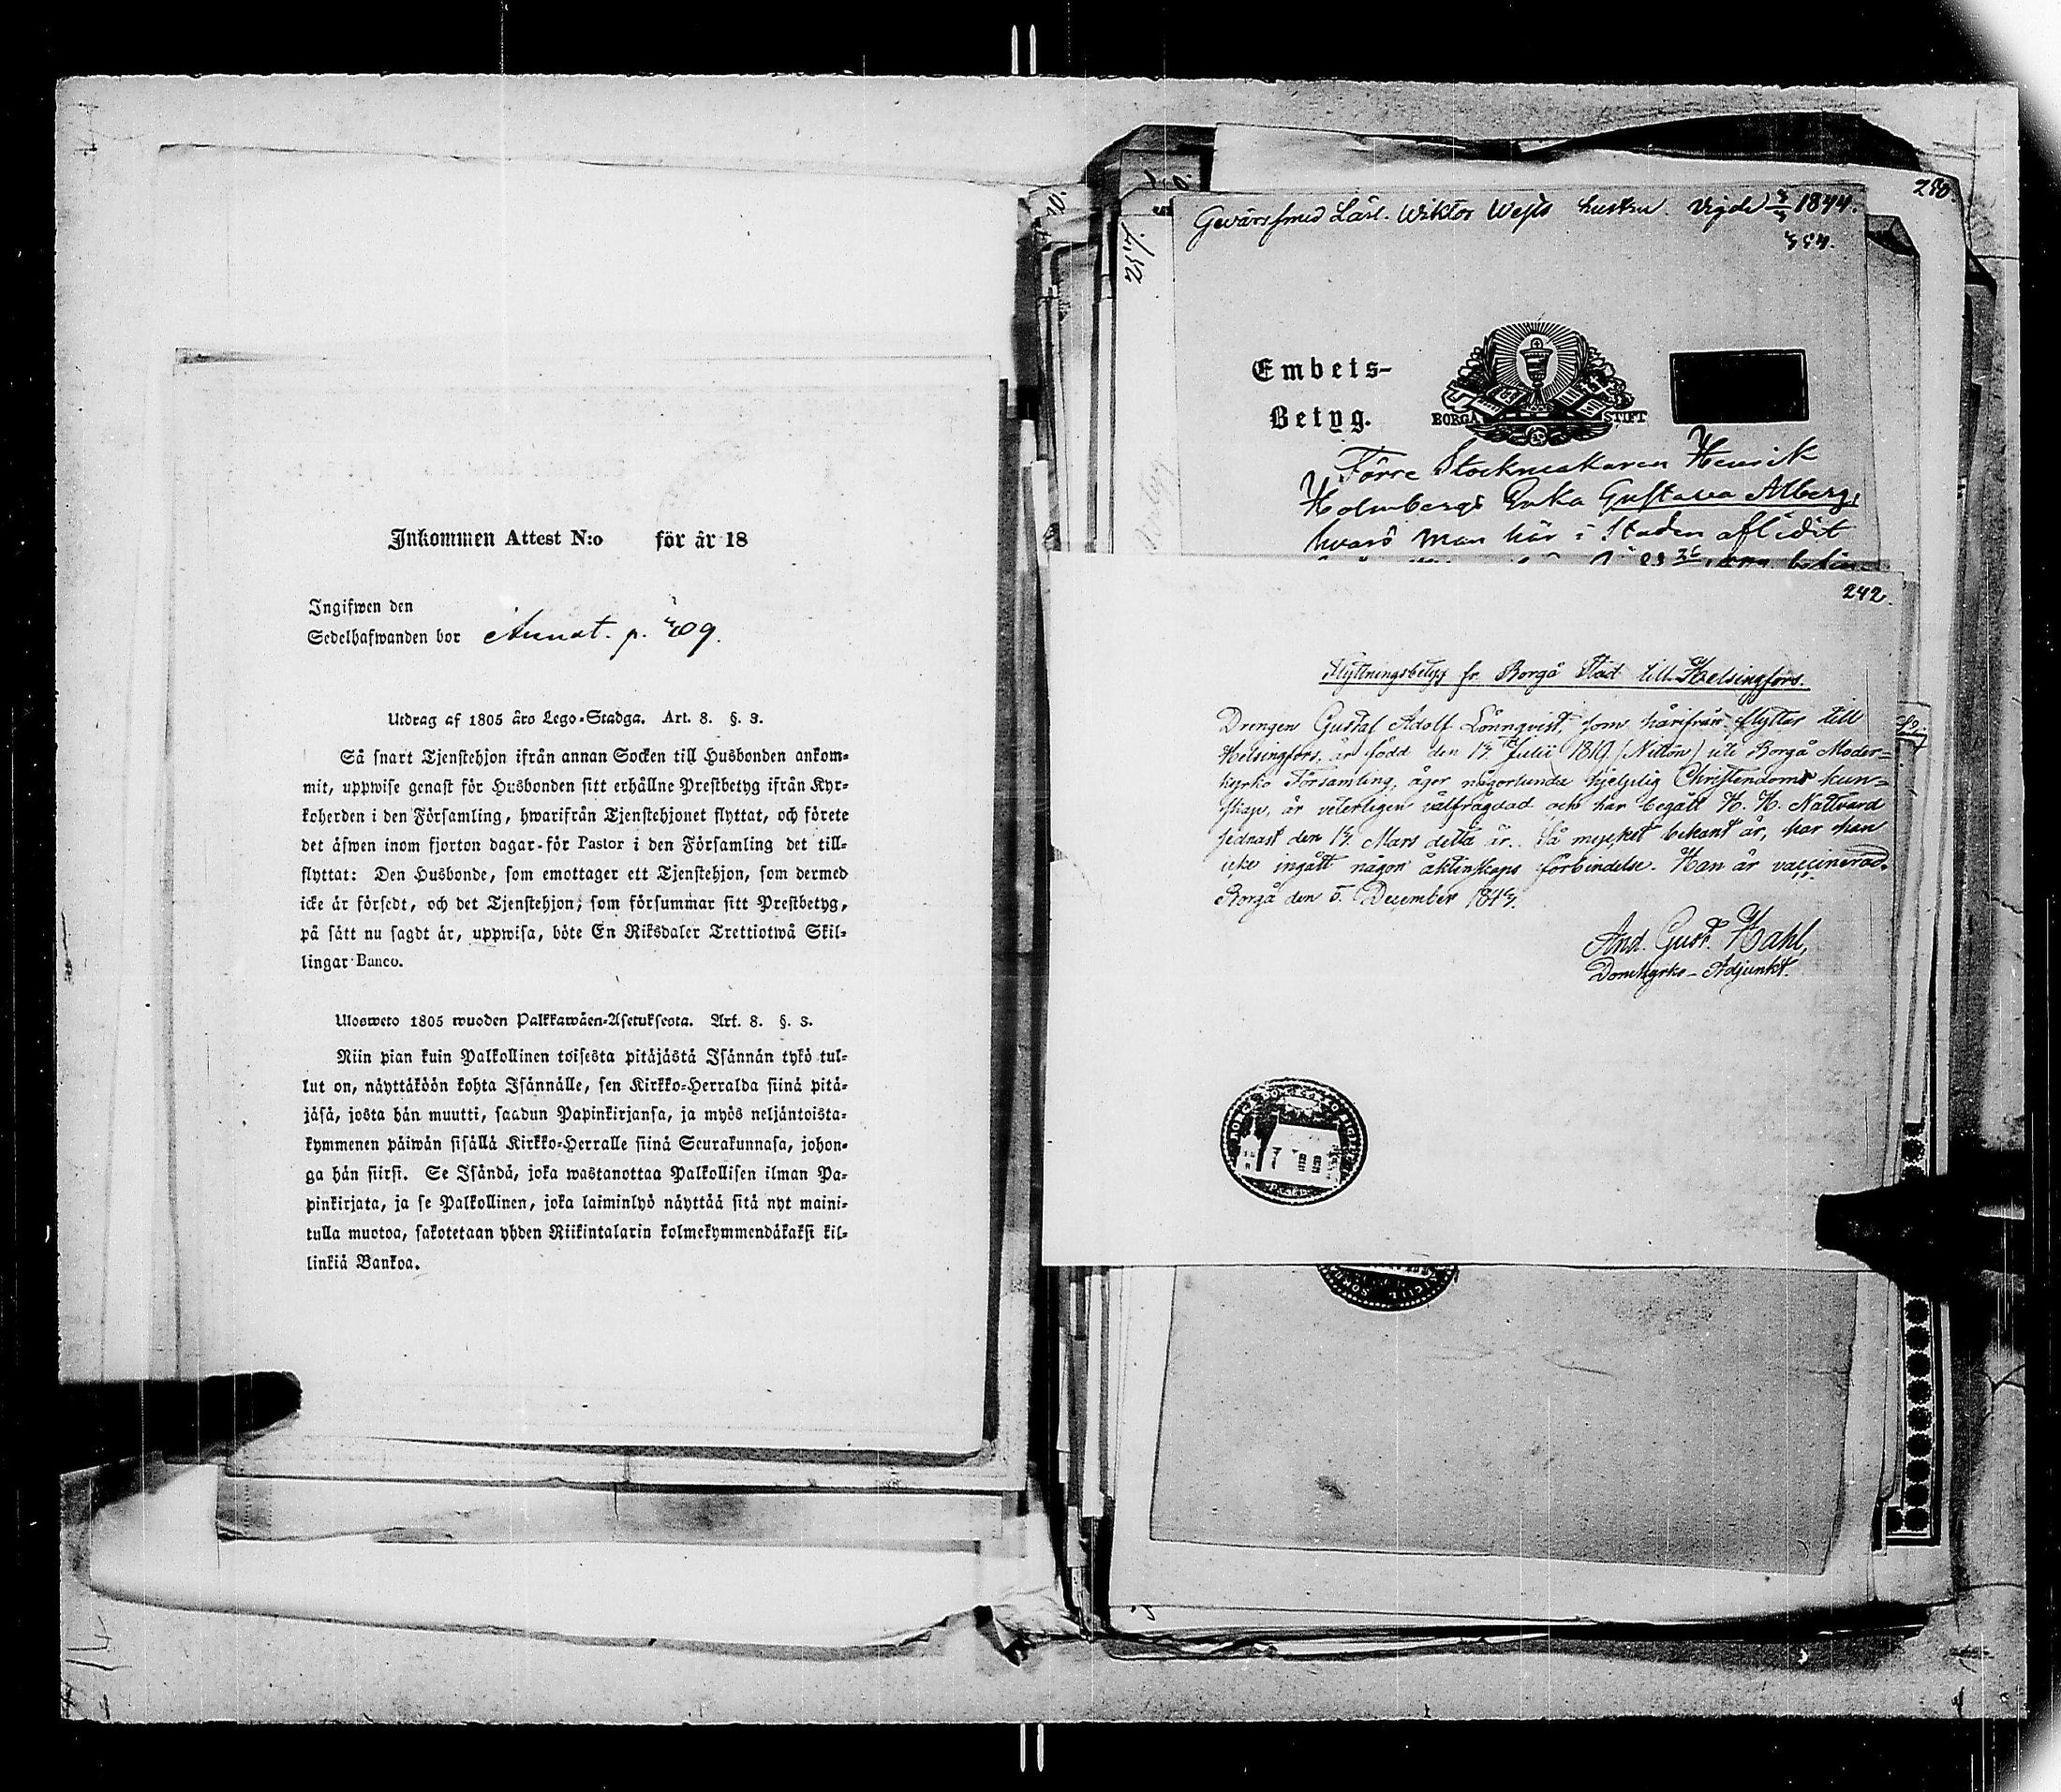 Inkommen Attest N:o för år 18
Ingifwen den
Sedelhafwanden bor Annat. p. 409.
Utdrag af 1805 års Lego-Stadga. Art. 8. §. 3.
Så snart Tjenstehjon ifrån annan Socken till Husbonden ankom-
mit, uppwise genast för Husbonden sitt erhållne Prestbetyg ifrån Kyr-
koherden i den Församling, hwarifrån Tjenstehjonet flyttat, och förete
det äfwen inom fjorton dagar för Pastor i den Församling det till-
flyttat: Den Husbonde, som emottager ett Tjenstehjon, som dermed
icke är försedt, och det Tjenstehjon, som försummar sitt Prestbetyg,
på sätt nu sagdt är, uppwisa, böte En Riksdaler Trettiotwå Skil-
lingar Banco.
Ulosweto 1805 wuoden Palkkawäen-Asetuksesta. Art. 8. §. 3.
Niin pian kuin Palkollinen toisesta pitäjästä Isännän tykö tul-
lut on, näyttäköön kohta Isännälle, sen Kirkko-Herralda siinä pitä-
jäsä, josta hän muutti, saadun Papinkirjansa, ja myös neljäntoista-
kymmenen päiwän sisällä Kirkko-Herralle siinä Seurakunnasa, johon-
ga hän siirsi. Se Isändä, joka wastanottaa Palkollisen ilman Pa-
pinkirjata, ja se Palkollinen, joka laiminlyö näyttää sitä nyt maini-
tulla muotoa, sakotetaan yhden Riikintalarin kolmekymmendäkaksi kil-
linkiä Bankoa.
280.
Gevärssmed Lärl. Wiktor hustru. Vigde 1844.
Embets-
Betyg.
BORGÅ STIFT
Förre Stockmakaren Henrik
Holmbergs Enka Gustava Alberg,
hvars man här i Staden aflidit
242.
Flyttningsbetyg fr. Borgå Stad till Helsingfors.
Drengen Gustaf Adolf Lönnqvist, som härifrån flyttar till
Helsingfors, är född den Julii 1819 (Nitton) uti Borgå Moder-
kyrko Församling, äger någorlunda hjelplig Christendoms kun-
skap, är veterligen välfrägdad och har begått H. H. Nattvard
sednast den Mars detta år. Så mycket bekant är, har han
icke ingått något äktenskaps förbindelse. Han är vaccinerad.
Borgå den 5. December
And. Gust. Hahl,
Domkyrko-Adjunkt.